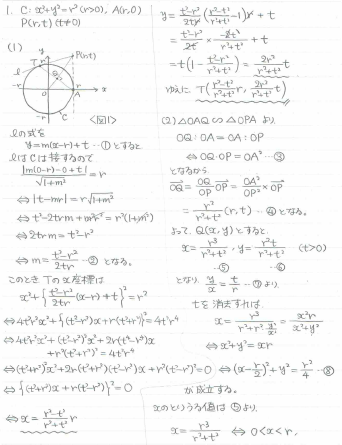 1. C: x²+y²=r² (r>0), A(r,0)
P(r,t) (t≠0)
(1)
y
P(r,t)
T
r
ℓ
Q
-r
O
r
A
x
-r
C
<図1>
ℓの式を
y=m(x-r)+t …① とすると
ℓはCは接するので
|m(0-r)-0+t| / √(1+m²) = r
⇔ |t-mr| = r√(1+m²)
⇔ t²-2trm+m²r² = r²(1+m²)
⇔ 2trm = t²-r²
⇔ m = (t²-r²)/(2tr) …② となる。
このとき Tのx座標は
x²+{(t²-r²)/(2tr) (x-r)+t}² = r²
⇔ 4t²r²x²+{(t²-r²)x+r(t²+r²)}² = 4t²r⁴
⇔ 4t²r²x²+(t²-r²)²x²+2r(t⁴-r⁴)x
+r²(t²+r²)² = 4t²r⁴
⇔ (t²+r²)²x²+2r(t²+r²)(t²-r²)x+r²(t²-r²)² = 0
⇔ {(t²+r²)x+r(t²-r²)}² = 0
⇔ x = r(r²-t²)/(r²+t²)
y = (t²-r²)/(2tr) ((r²-t²)/(r²+t²) -1) r + t
= (t²-r²)/(2t) × (-2t²)/(r²+t²) + t
= t(1-(t²-r²)/(r²+t²)) = 2r²/(r²+t²) t
ゆえに T(r(r²-t²)/(r²+t²), 2r²t/(r²+t²))
(2) △OAQ ∽ △OPA より
OQ:OA = OA:OP
⇔ OQ・OP = OA² …③
となるから
OQ→ = OQ/OP OP→ = OA²/OP² × OP→
= r²/(r²+t²) (r,t) …④ となる。
よって、Q(x,y)とすると
x = r³/(r²+t²), y = r²t/(r²+t²) (t>0)
…⑤ …⑥
となり、y/x = t/r …⑦ より、
tを消去すれば、
x = r³/(r²+r²・y²/x²) = x²r/(x²+y²)
⇔ x²+y² = xr
⇔ (x-r/2)²+y² = r²/4 …⑧
が成立する。
xのとりうる値は ⑤より、
x = r³/(r²+t²) ⇔ 0<x<r,